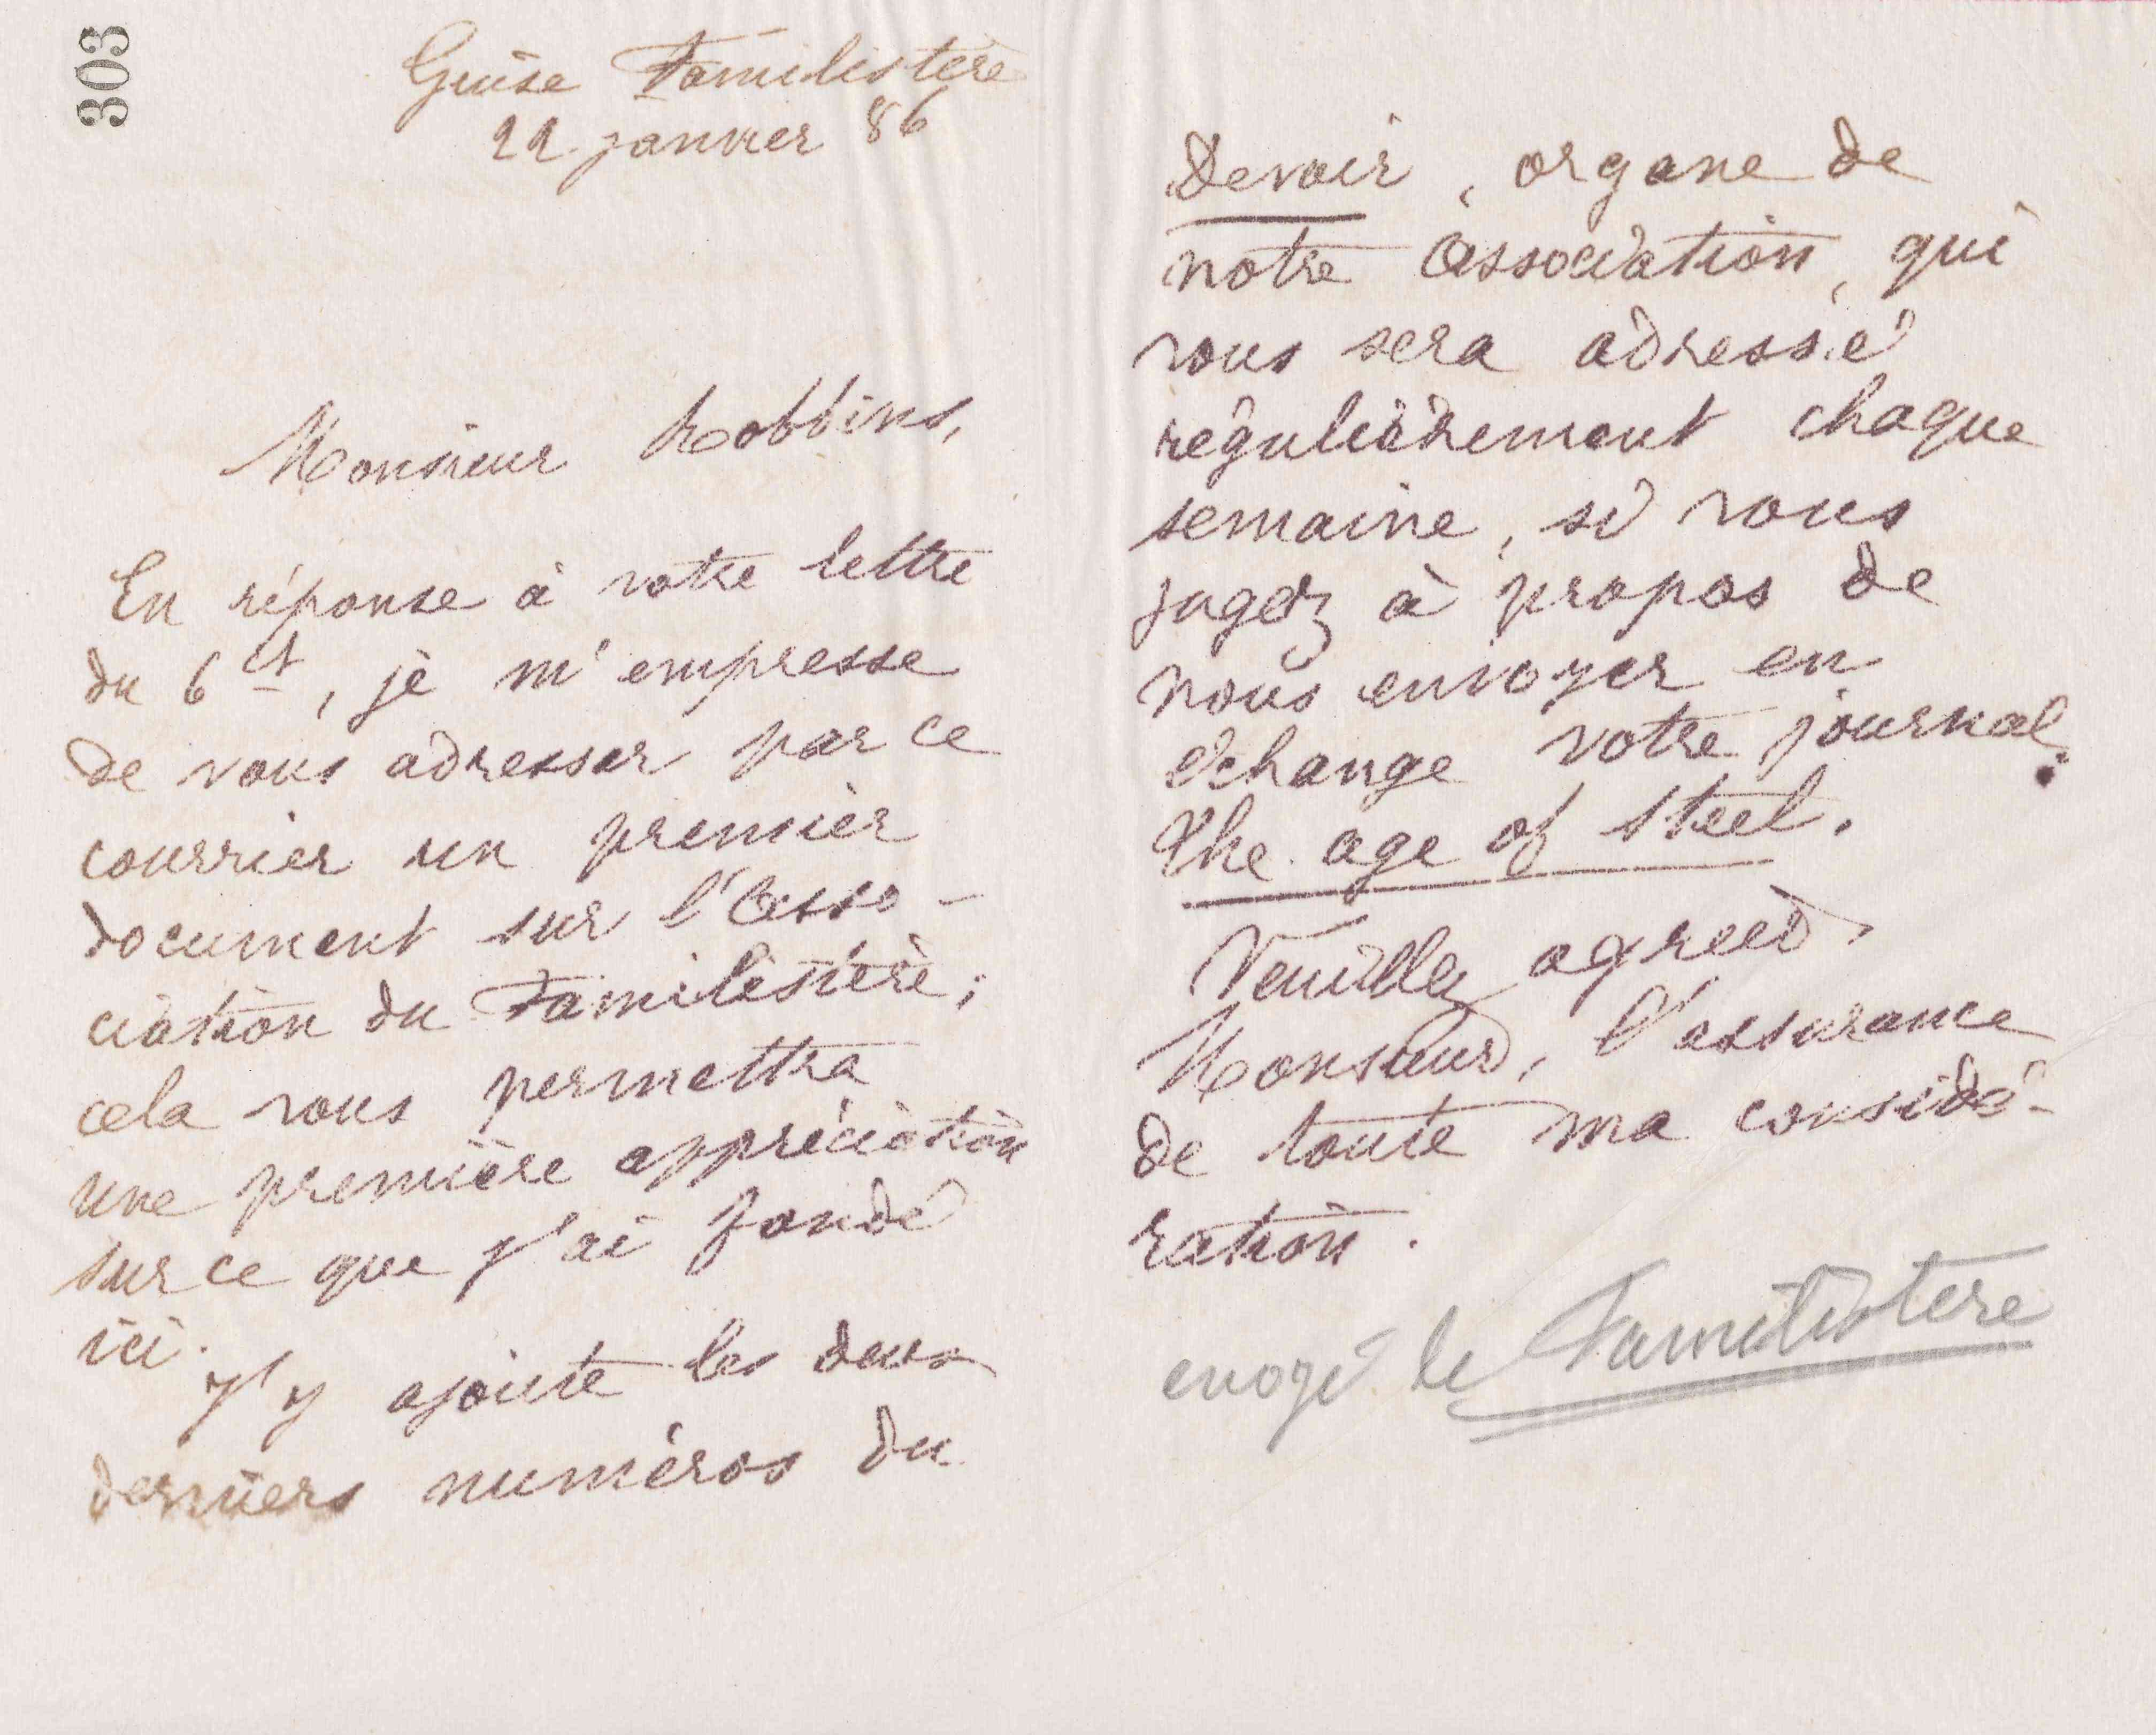 303
Guise Familistère
22 janvier 86
Monsieur Robbins,
En réponse à votre lettre
du 6 ct, je m'empresse
de vous adresser par ce
courrier un premier
document sur l'Asso-
ciation du Familistère ;
cela vous permettra
une première appréciation
sur ce que j'ai fondé
ici.
J'y ajoute les deux
derniers numéros du
Devoir, organe de
notre Association, qui
vous sera adressé
régulièrement chaque
semaine, si vous
jugez à propos de
nous envoyer en
échange votre journal :
The age of Steel.
Veuillez agréer,
Monsieur, l'assurance
de toute ma considé-
ration.
envoyé le Familistère